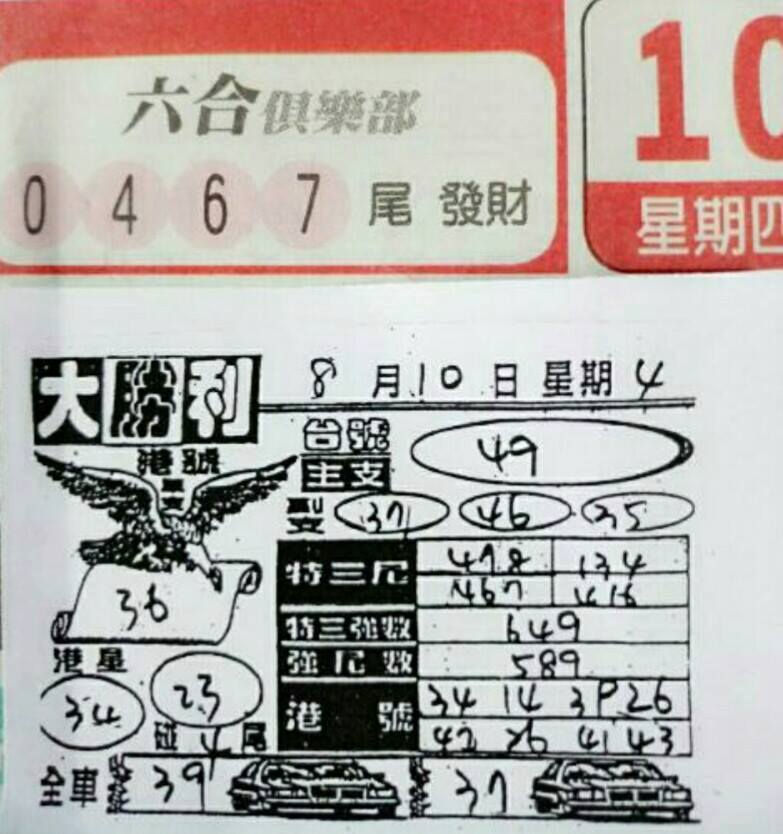 六合俱樂部
0 4 6 7 尾 發財
10
星期四
大勝利
8 月 10 日 星期 4
港號
台號
主支 49
副支 37 46 35
36
特三尾 478 134
467 416
特三強數 649
強尾數 589
港星
34 23
港號 34 14 39 26
42 26 41 43
碰 4 尾
全車 39 37